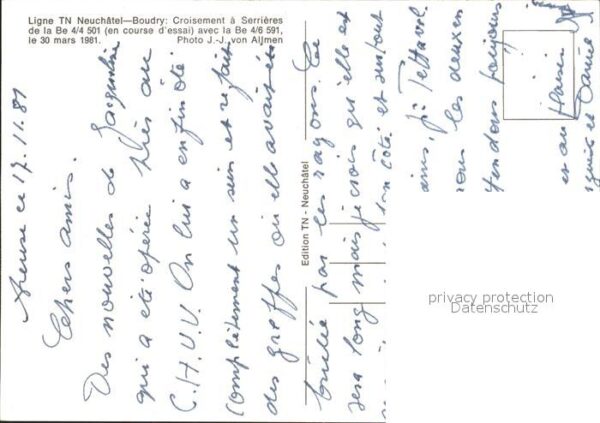 Ligne TN Neuchâtel—Boudry: Croisement à Serrières
de la Be 4/4 501 (en course d'essai) avec la Be 4/6 591,
le 30 mars 1981. Photo J.-J. von Allmen
Edition TN - Neuchâtel
Areuse ce 17.11.81
Chers amis.
Des nouvelles de Jacqueline
qui a été opérée très au
C.H.U.V. On lui a enfin ôté
complètement un sein et refait
des greffes où elle avait été
brûlée par les rayons. Ce
sera long mais je crois qu'elle est
bon côté et surtout
ainsi,
tous les deux en
tendons toujours
privacy protection
Datenschutz